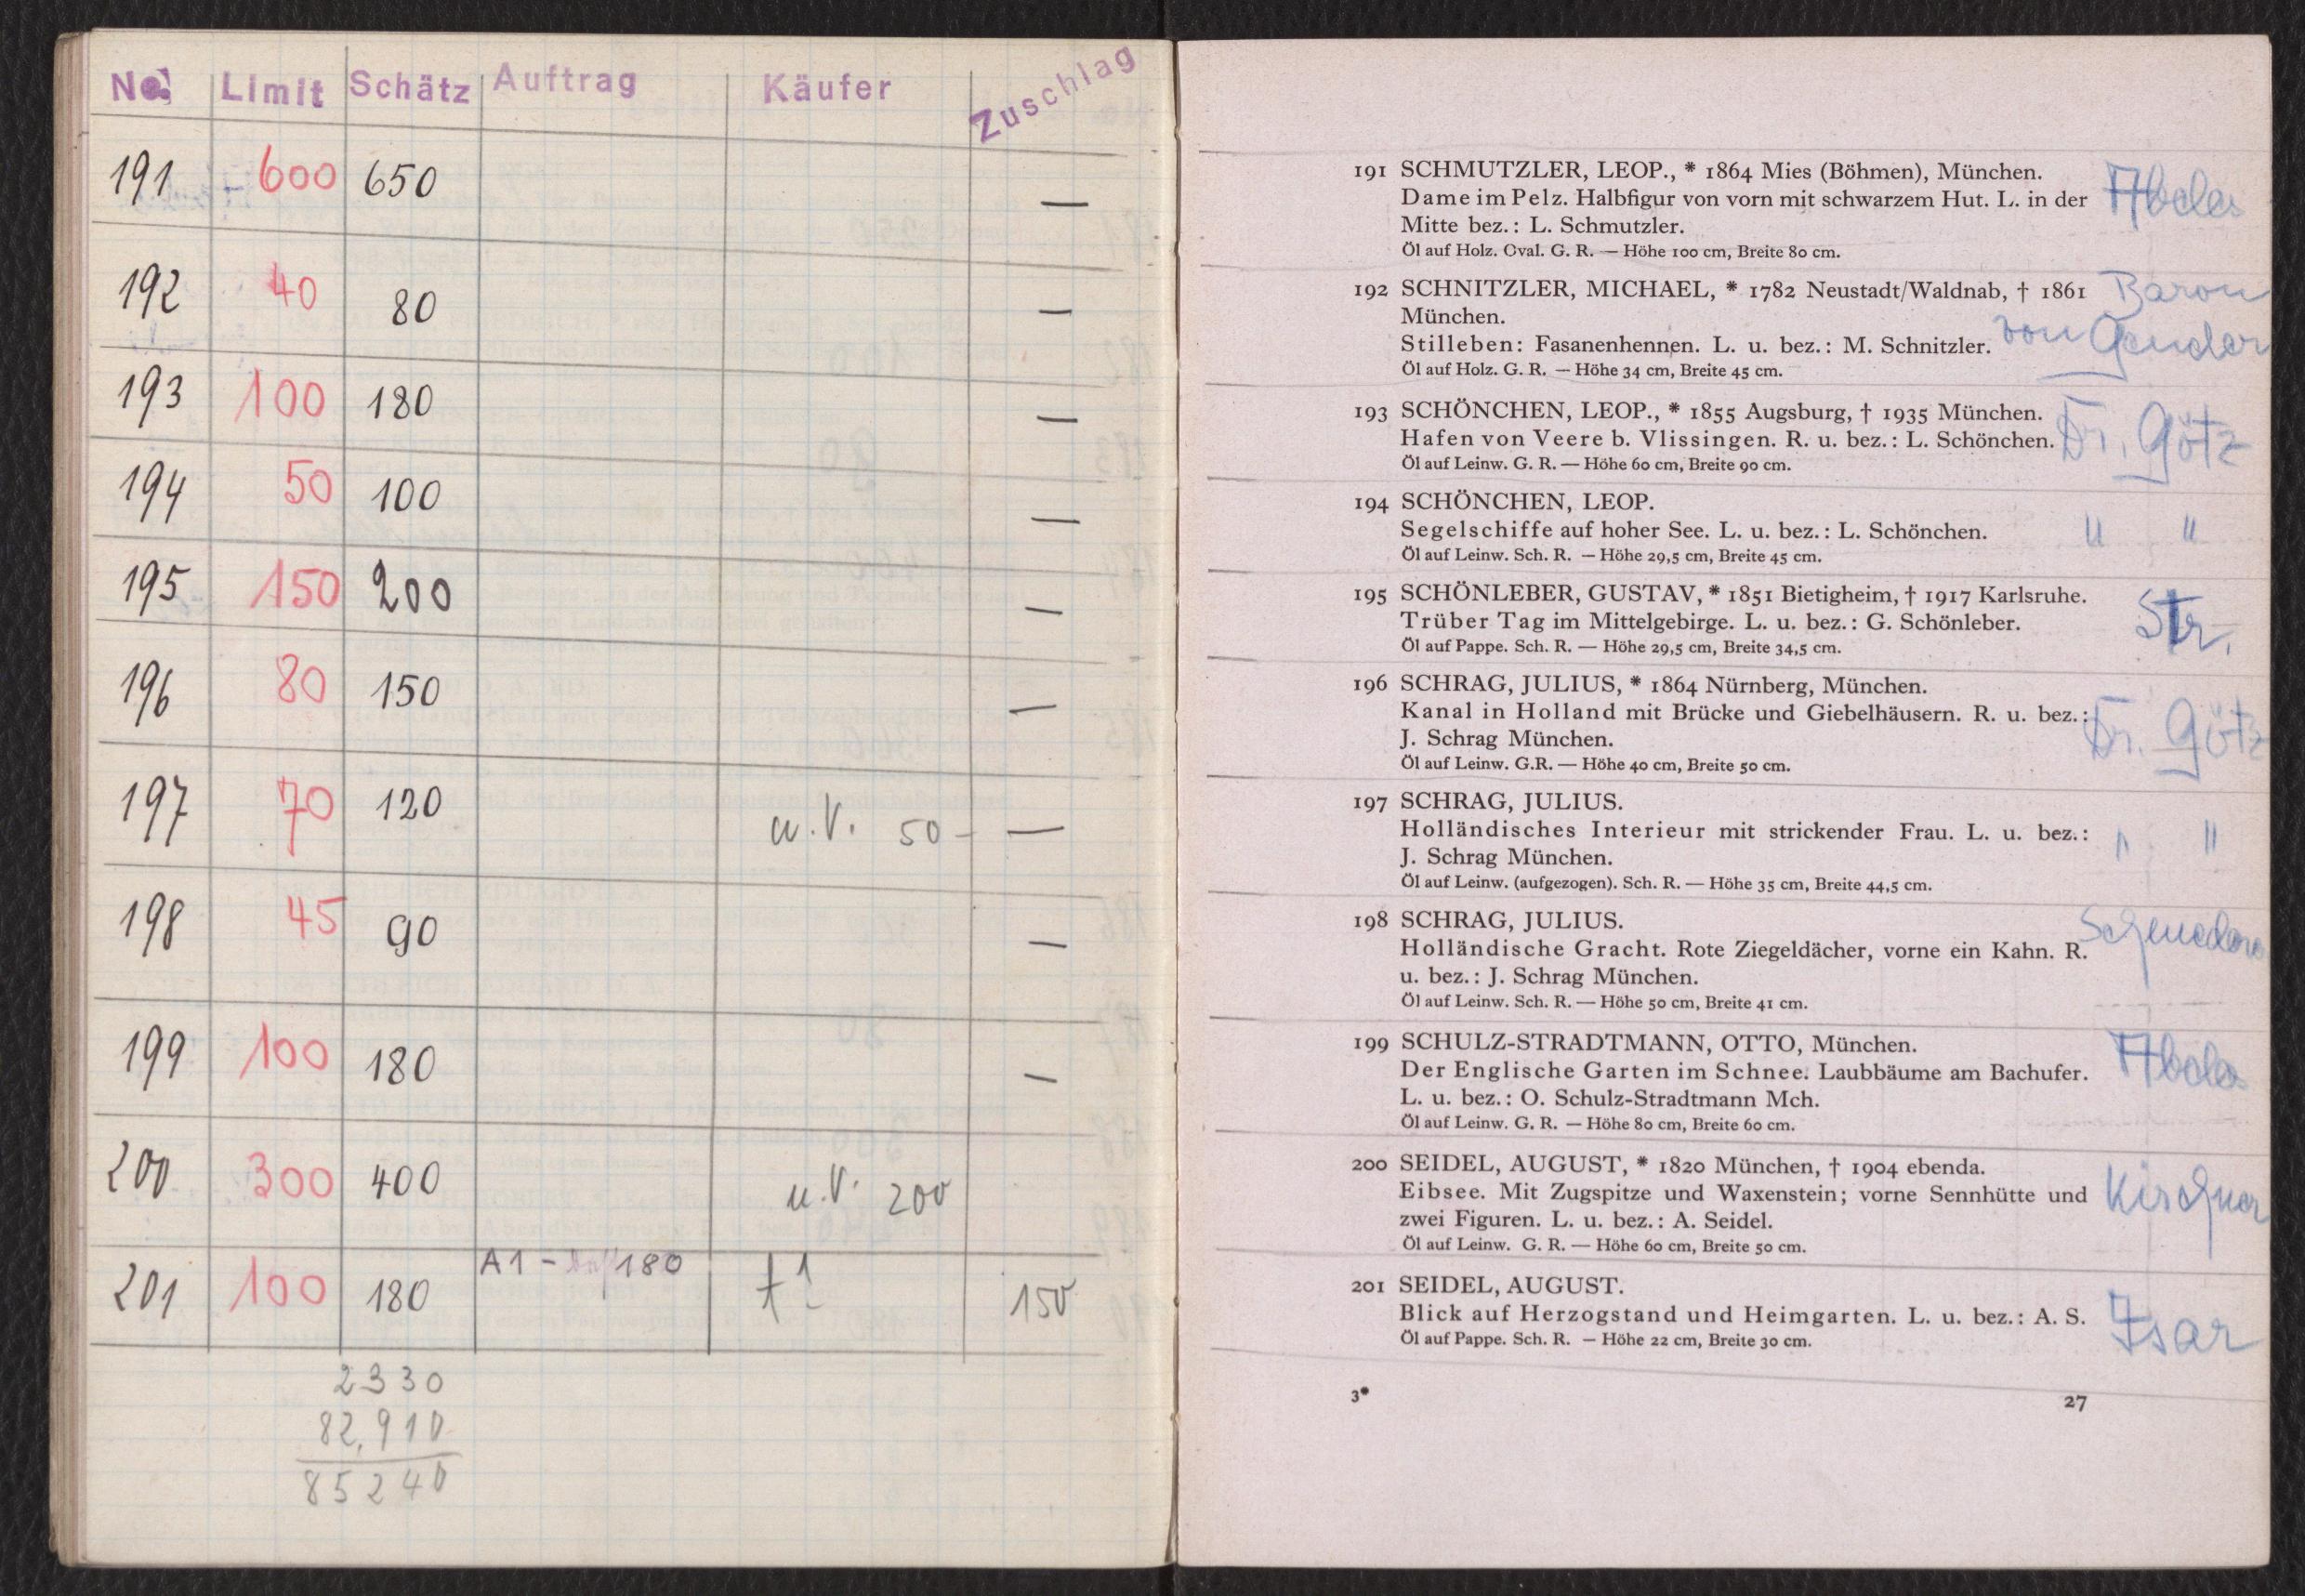 No. Limit Schätz Auftrag Käufer Zuschlag
191 600 650 —
192 40 80 —
193 100 180 —
194 50 100 —
195 150 200 —
196 80 150 —
197 70 120 u.V. 50 - —
198 45 90 —
199 100 180 —
200 300 400 u.V. 200
201 100 180 A1 - 180 150
2330
82,910
85240
191 SCHMUTZLER, LEOP., * 1864 Mies (Böhmen), München.
Dame im Pelz. Halbfigur von vorn mit schwarzem Hut. L. in der
Mitte bez.: L. Schmutzler.
Öl auf Holz. Oval. G. R. — Höhe 100 cm, Breite 80 cm.
Abeles
192 SCHNITZLER, MICHAEL, * 1782 Neustadt/Waldnab, † 1861
München.
Stilleben: Fasanenhennen. L. u. bez.: M. Schnitzler.
Öl auf Holz. G. R. — Höhe 34 cm, Breite 45 cm.
Baron
von
193 SCHÖNCHEN, LEOP., * 1855 Augsburg, † 1935 München.
Hafen von Veere b. Vlissingen. R. u. bez.: L. Schönchen.
Öl auf Leinw. G. R. — Höhe 60 cm, Breite 90 cm.
Dr. Götz
194 SCHÖNCHEN, LEOP.
Segelschiffe auf hoher See. L. u. bez.: L. Schönchen.
Öl auf Leinw. Sch. R. — Höhe 29,5 cm, Breite 45 cm.
" "
195 SCHÖNLEBER, GUSTAV, * 1851 Bietigheim, † 1917 Karlsruhe.
Trüber Tag im Mittelgebirge. L. u. bez.: G. Schönleber.
Öl auf Pappe. Sch. R. — Höhe 29,5 cm, Breite 34,5 cm.
Str.
196 SCHRAG, JULIUS, * 1864 Nürnberg, München.
Kanal in Holland mit Brücke und Giebelhäusern. R. u. bez.:
J. Schrag München.
Öl auf Leinw. G.R. — Höhe 40 cm, Breite 50 cm.
Dr. Götz
197 SCHRAG, JULIUS.
Holländisches Interieur mit strickender Frau. L. u. bez.:
J. Schrag München.
Öl auf Leinw. (aufgezogen). Sch. R. — Höhe 35 cm, Breite 44,5 cm.
" "
198 SCHRAG, JULIUS.
Holländische Gracht. Rote Ziegeldächer, vorne ein Kahn. R.
u. bez.: J. Schrag München.
Öl auf Leinw. Sch. R. — Höhe 50 cm, Breite 41 cm.
199 SCHULZ-STRADTMANN, OTTO, München.
Der Englische Garten im Schnee. Laubbäume am Bachufer.
L. u. bez.: O. Schulz-Stradtmann Mch.
Öl auf Leinw. G. R. — Höhe 80 cm, Breite 60 cm.
Abeles
200 SEIDEL, AUGUST, * 1820 München, † 1904 ebenda.
Eibsee. Mit Zugspitze und Waxenstein; vorne Sennhütte und
zwei Figuren. L. u. bez.: A. Seidel.
Öl auf Leinw. G. R. — Höhe 60 cm, Breite 50 cm.
Kirchner
201 SEIDEL, AUGUST.
Blick auf Herzogstand und Heimgarten. L. u. bez.: A. S.
Öl auf Pappe. Sch. R. — Höhe 22 cm, Breite 30 cm.
Isar
3*
27